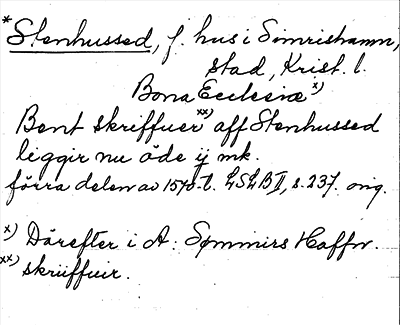 * Stenhussed, f. hus i Simrishamn,
stad, Krist. l.
Bona Ecclesiæ x)
Bent skriffuer xx) aff Stenhussed
liggir nu öde ij mk.
förra delen av 1570-t. LSLB II, s. 237. orig.
x) Därefter i A: Sømmirs Haffn.
xx) skriiffuir.